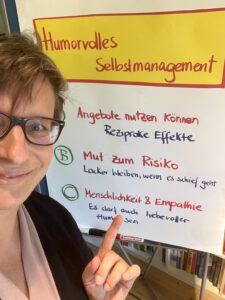 Humorvolles
Selbstmanagement
Angebote nutzen können
Reziproke Effekte
B Mut zum Risiko
Locker bleiben, wenn es schief geht
C Menschlichkeit & Empathie
Es darf auch liebevoller
Humor sein